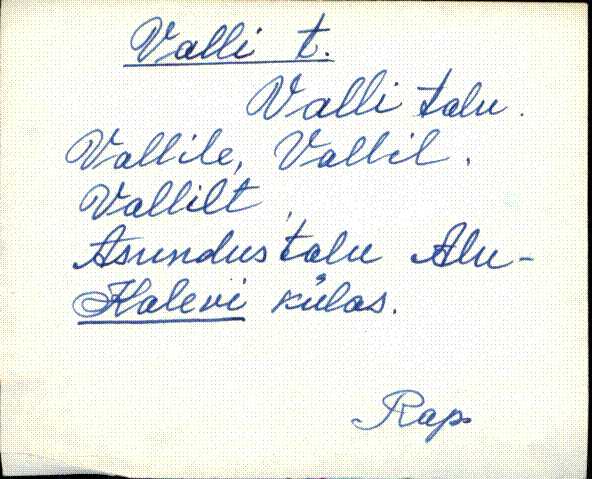 Valli t.
Valli talu.
Vallile, Vallil.
Vallilt,
Asundustalu Alu-
Kalevi külas.
Rap.